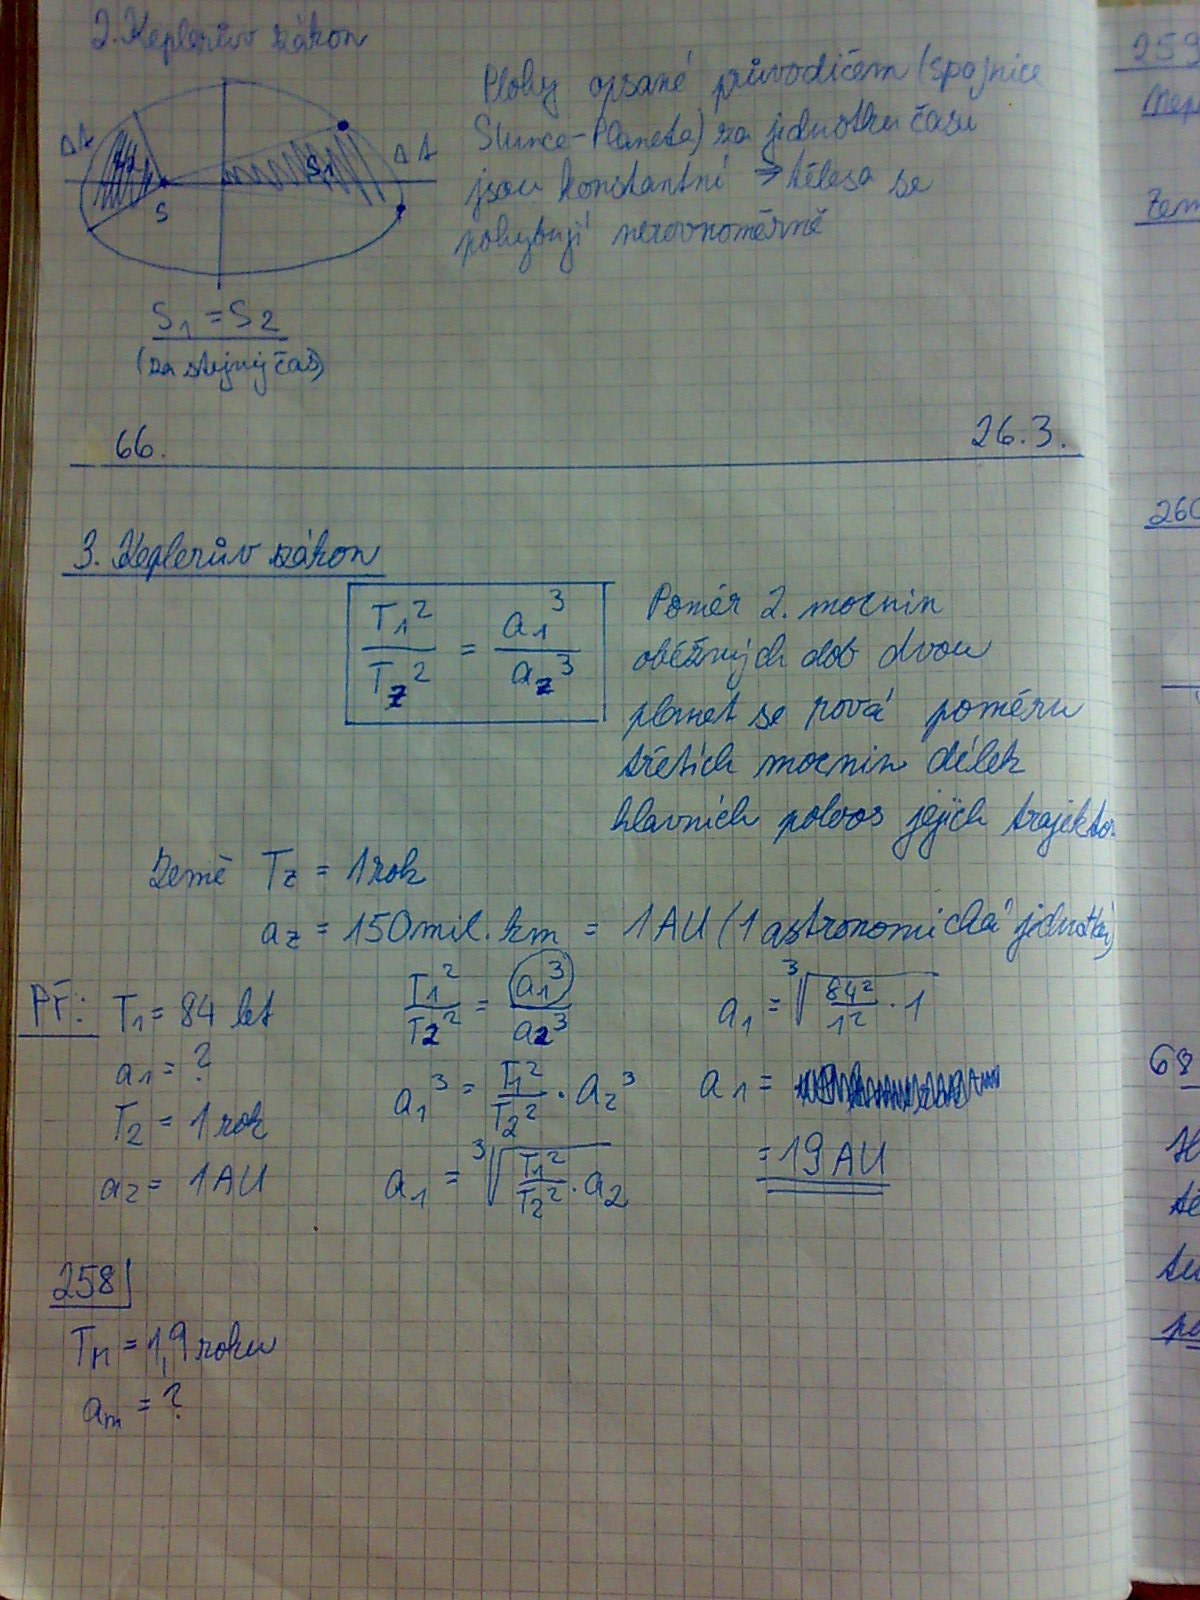 2. Keplerův zákon
Plohy opsané průvodičem (spojnice
Slunce-Planeta) za jednotku času
jsou konstantní ⇒ tělesa se
pohybují nerovnoměrně
Δt
S
S1
Δt
S1 = S2
(za stejný čas)
66.
26.3.
3. Keplerův zákon
T1² / Tz² = a1³ / az³
Poměr 2. mocnin
oběžných dob dvou
planet se rová poměru
třetích mocnin délek
hlavních poloos jejich trajektor
Země Tz = 1 rok
az = 150 mil. km = 1 AU (1 astronomická jednotka)
Př:
T1 = 84 let
a1 = ?
T2 = 1 rok
a2 = 1 AU
T1² / T2² = a1³ / a2³
a1³ = T1² / T2² · a2³
a1 = ³√(T1² / T2² · a2
a1 = ³√(84² / 1² · 1
a1 =
= 19 AU
258
TM = 1,9 roku
am = ?
259
Kep
Zem
260
68